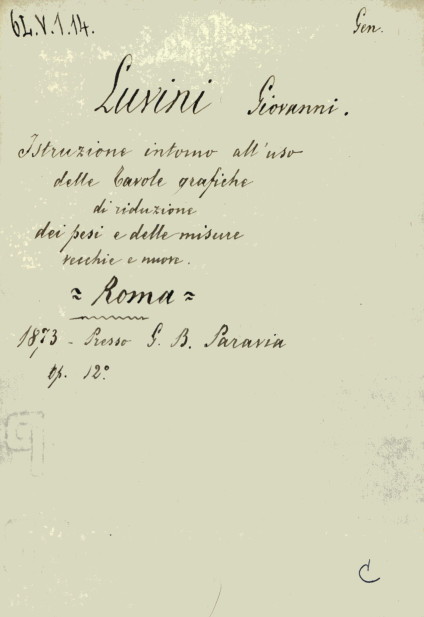 6L.V.1.14.
Gen.
Luvini Giovanni.
Istruzione intorno all'uso
delle Tavole grafiche
di riduzione
dei pesi e delle misure
vecchie e nuove.
= Roma =
1873 - Presso G. B. Paravia
op. 12°
C